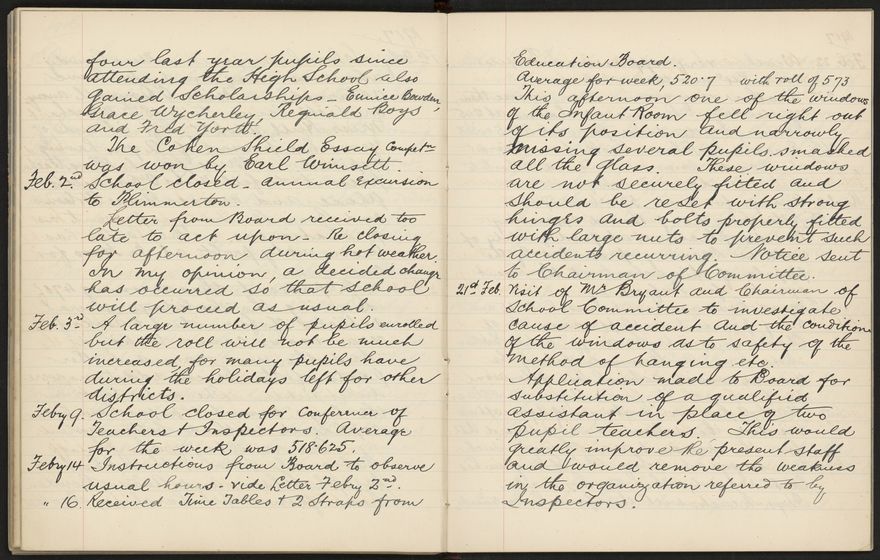 four last year pupils since
attending the High School also
gained Scholarships - Eunice Bowden,
Grace Wycherley, Reginald Boys,
and Fred York.
The Cohen Shield Essay Competn
was won by Earl Winsett.
Feb. 2nd School closed - annual Excursion
to Plimmerton.
Letter from Board received too
late to act upon - Re closing
for afternoon during hot weather.
In my opinion, a decided change
has occurred so that School
will proceed as usual.
Feb. 3rd A large number of pupils enrolled
but the roll will not be much
increased, for many pupils have
during the holidays left for other
districts.
Feby 9. School closed for Conference of
Teachers + Inspectors. Average
for the week was 518.625.
Feby 14 Instructions from Board to observe
usual hours - vide Letter Febry 2nd.
" 16. Received Time Tables + 2 Straps from
Education Board.
Average for week, 520.7 with roll of 573
This afternoon one of the windows
of the Infant Room fell right out
of its position and narrowly
missing several pupils, smashed
all the glass. These windows
are not securely fitted and
should be reset with strong
hinges and bolts properly fitted
with large nuts to prevent such
accidents recurring. Notice sent
to Chairman of Committee.
21st Feb. Visit of Mr Bryant and Chairman of
School Committee to investigate
cause of accident and the condition
of the windows as to safety of the
method of hanging etc.
Application made to Board for
substitution of a qualified
assistant in place of two
pupil teachers. This would
greatly improve the present staff
and would remove the weakness
in the organization referred to by
Inspectors.